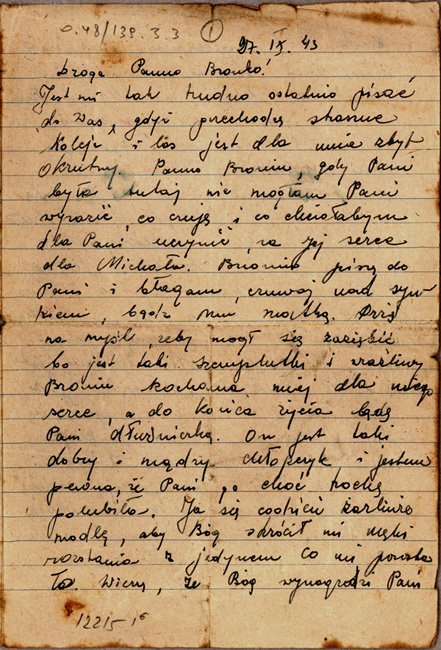 0.48/139.3.3 1
27. IX. 43
Droga Panno Bronko!
Jest mi tak trudno ostatnio pisać
do Was, gdyż przechodzę straszne
koleje i los jest dla mnie zbyt
okrutny. Panno Broniu, gdy Pani
była tutaj nie mogłam Pani
wyrazić, co czuję i co chciałabym
dla Pani uczynić, za jej serce
dla Michała. Broniu piszę do
Pani i błagam, czuwaj nad syn-
kiem, bądź mu matką. Drżę
na myśl, żeby mógł się zaziębić
bo jest taki szczuplutki i wrażliwy
Broniu kochana miej dla niego
serce, a do końca życia będę
Pani dłużniczką. On jest taki
dobry i mądry chłopczyk i jestem
pewna, że Pani go choć trochę
polubiła. Ja się codzień żarliwie
modlę, aby Bóg skrócił mi męki
rozstania z jedynem co mi pozosta
ło. Wierzę, że Bóg wynagrodzi Pani
12215